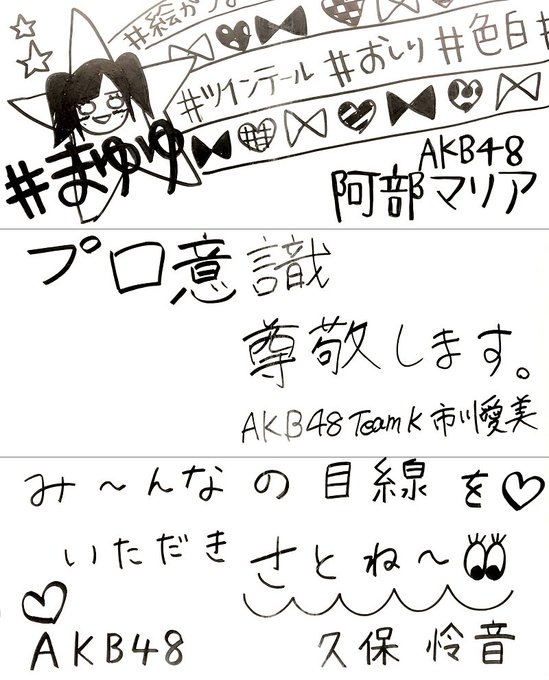 #絵が
#ツインテール #おしり #色白 #
#まゆゆ
AKB48
阿部マリア
プロ意識
尊敬します。
AKB48 Team K 市川愛美
み〜んなの目線を
いただきさとね〜
AKB48 久保怜音